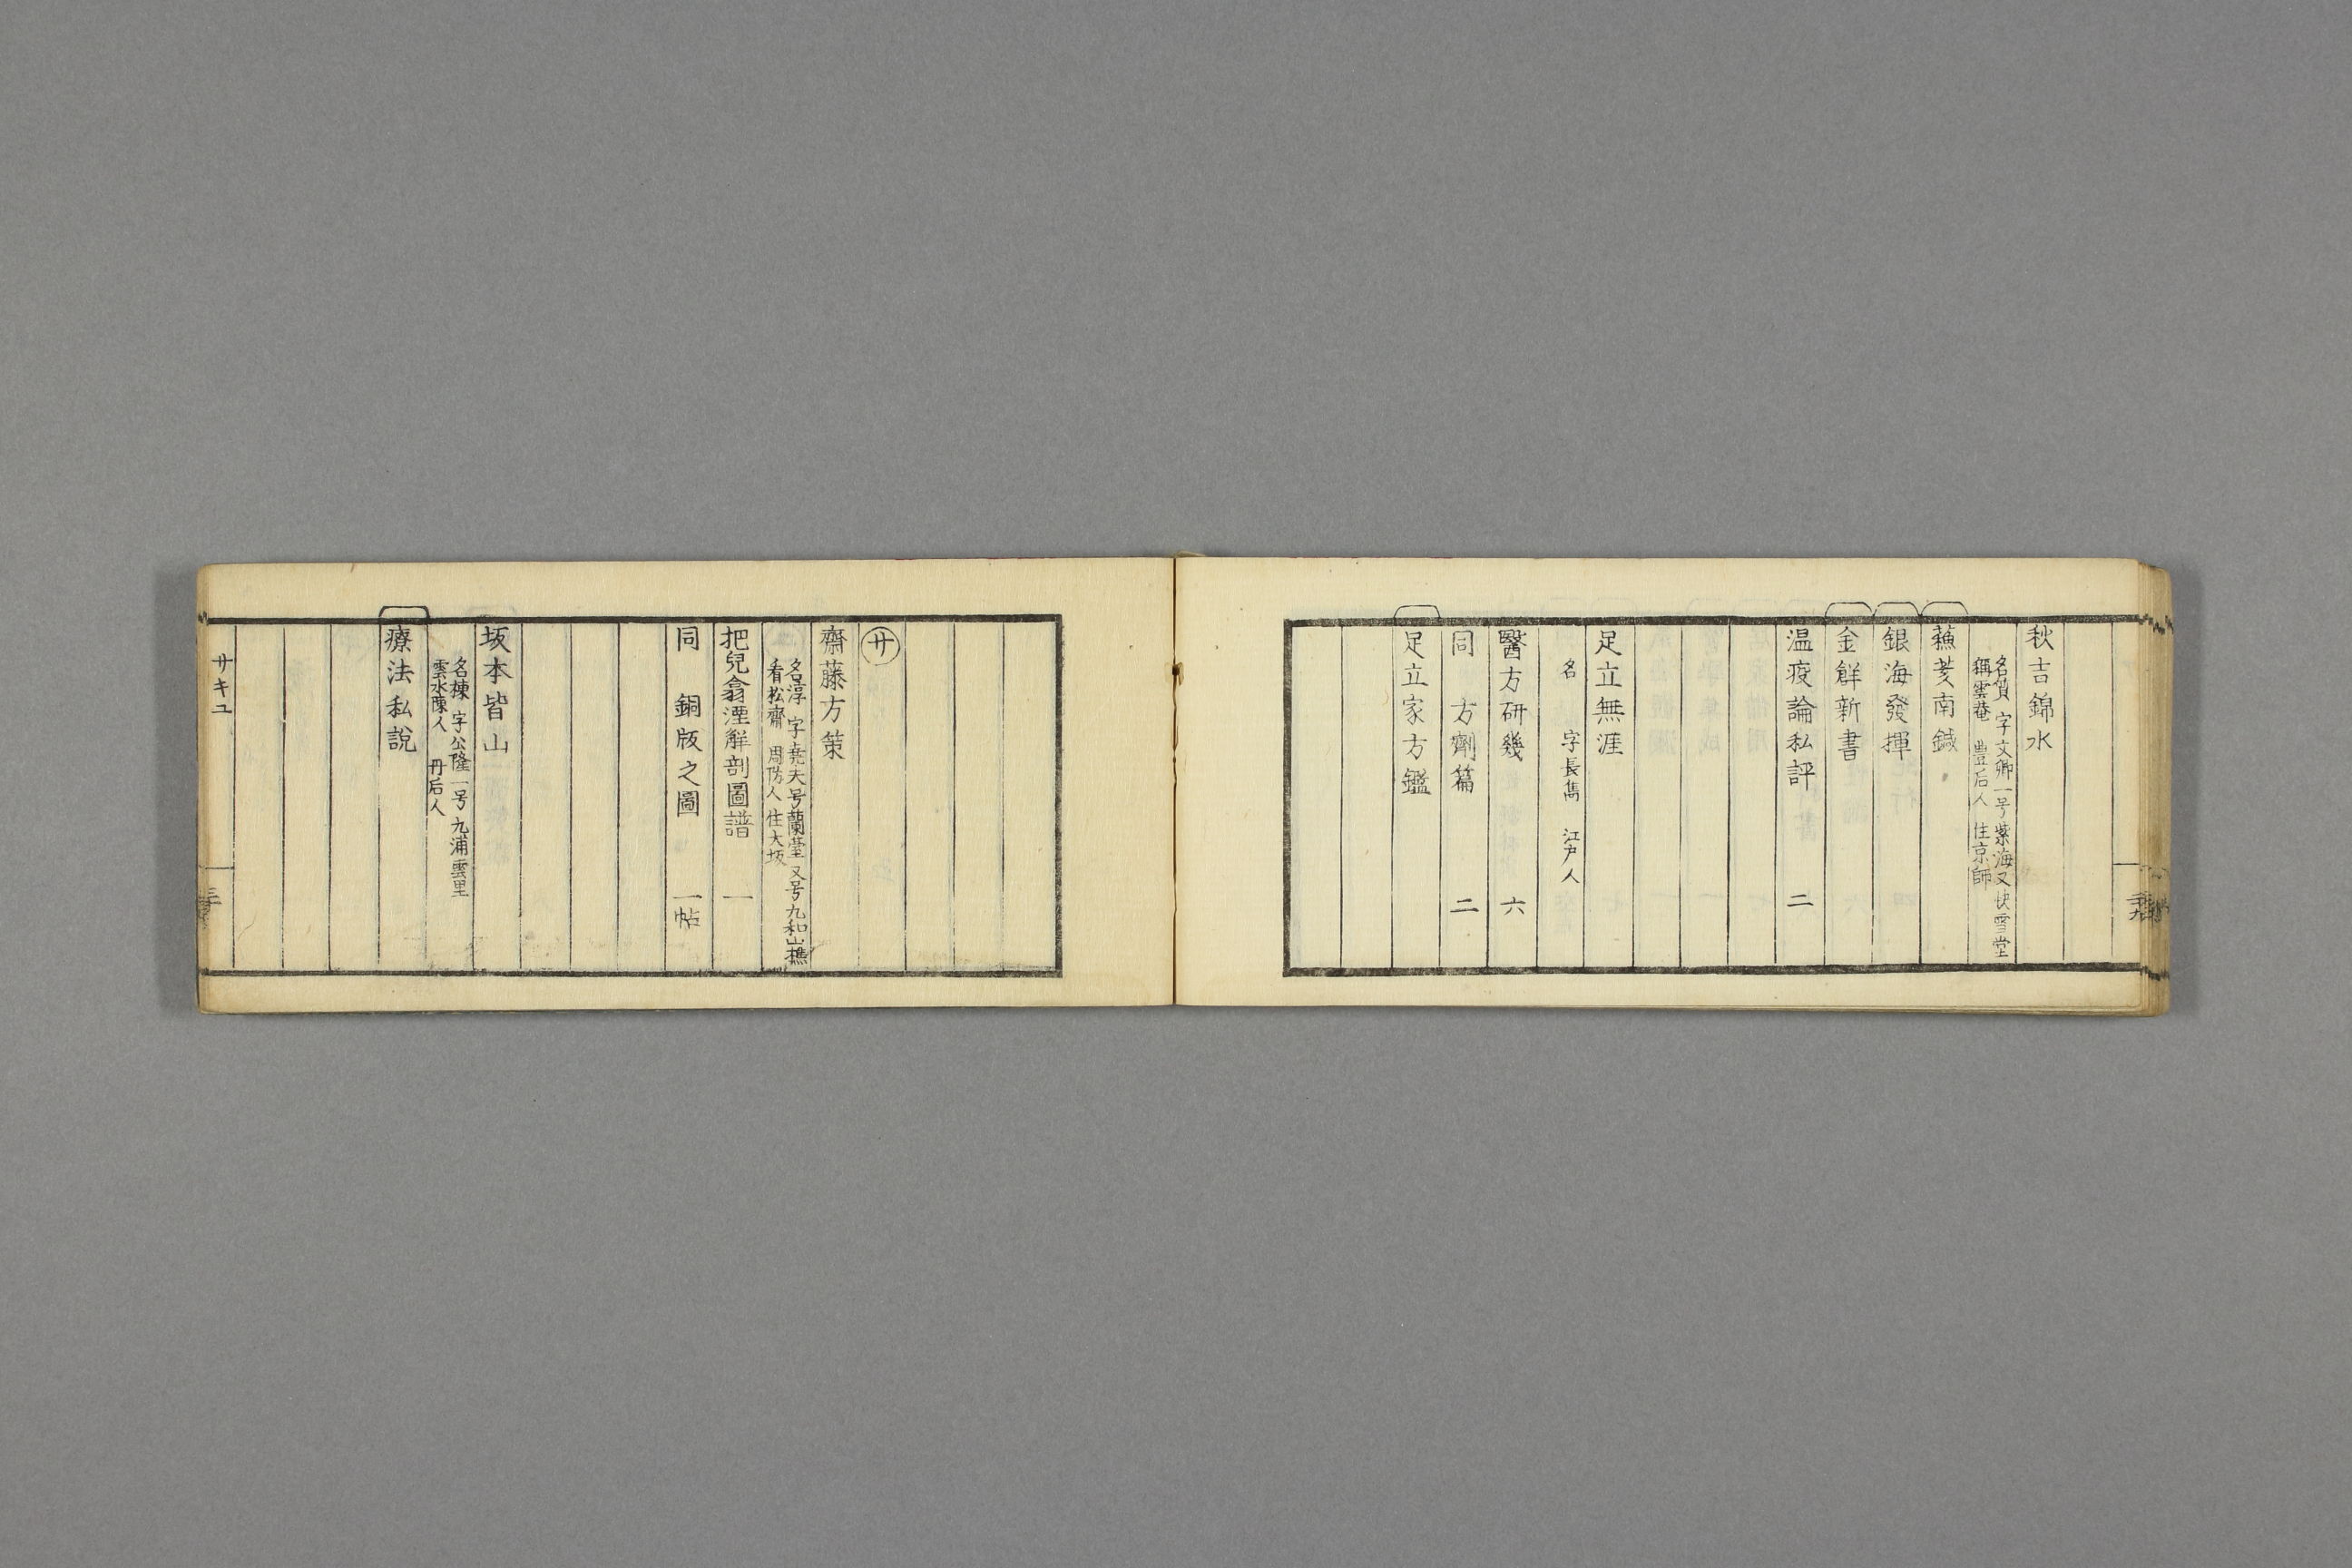 秋吉錦水
名質 字文卿一号紫海又快雪堂
稱雲菴 豊后人 住京師
蘓菱南鍼
銀海發揮
金鮮新書
温疫論私評 二
足立無涯
名 字長雋 江戸人
醫方研幾 六
同 方劑篇 二
足立家方鑑
サ
齋藤方策
名淳 字尭夫号蘭薹又号九和山樵
看松齋 周防人 住大坂
把兒翕湮解剖圖譜 一
同 銅版之圖 一帖
坂本皆山
名棟 字公隆一号九浦雲里
雲水陳人 丹后人
療法私說
サキユ